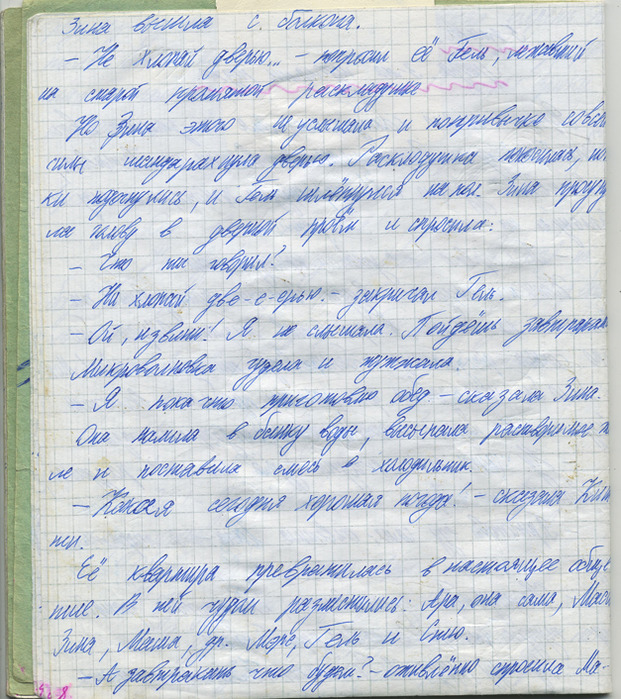 Зина вышла с балкона.
– Не хлопай дверью... – попросил её Гель, лежавший
на старой кроватной раскладушке
Но Зина этого не услышала и попривычке со всей
силы шандарахнула дверью. Раскладушка покосилась, нож
ки подогнулись, и Гель шлёпнулся на пол. Зина просуну
ла голову в дверной проём и спросила:
– Что ты говорил?
– Не хлопай две-е-ерью. – закричал Гель.
– Ой, извини! Я не слышала. Пойдёшь завтракать
Микроволновка гудела и жужжала.
– Я пока что приготовлю обед – сказала Зина.
Она налила в банку воды, высыпала растворимое
ле и поставила смесь в холодильник.
– Какая сегодня хорошая погода! – сказала
Её квартира превратилась в настоящее обще
тие. В ней чудом разместились: Ара, она сама,
Зина, Маша, др. Море, Гель и Стю.
– А завтракать что будем? – оживлённо спросила Ма-